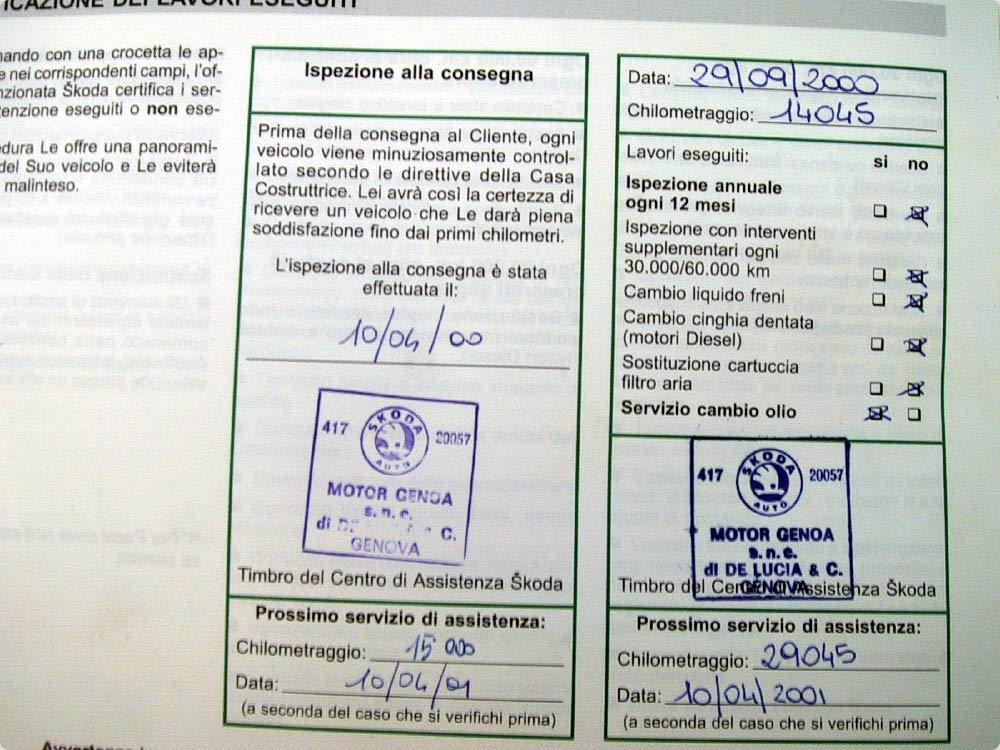 ICAZIONE DEI LAVORI ESEGUITI
nando con una crocetta le ap-
e nei corrispondenti campi, l'of-
nzionata Škoda certifica i ser-
tenzione eseguiti o non ese-
edura Le offre una panorami-
del Suo veicolo e Le eviterà
malinteso.
Ispezione alla consegna
Prima della consegna al Cliente, ogni
veicolo viene minuziosamente control-
lato secondo le direttive della Casa
Costruttrice. Lei avrà così la certezza di
ricevere un veicolo che Le darà piena
soddisfazione fino dai primi chilometri.
L'ispezione alla consegna è stata
effettuata il:
10/04/00
ŠKODA
417 20057
AUTO
MOTOR GENOA
s.n.c.
di D. C.
GENOVA
Timbro del Centro di Assistenza Škoda
Prossimo servizio di assistenza:
Chilometraggio: 15 000
Data: 10/04/01
(a seconda del caso che si verifichi prima)
Data: 29/09/2000
Chilometraggio: 14045
Lavori eseguiti: si no
Ispezione annuale
ogni 12 mesi
Ispezione con interventi
supplementari ogni
30.000/60.000 km
Cambio liquido freni
Cambio cinghia dentata
(motori Diesel)
Sostituzione cartuccia
filtro aria
Servizio cambio olio
ŠKODA
417 20057
AUTO
MOTOR GENOA
s.n.c.
di DE LUCIA & C.
GENOVA
Timbro del Centro di Assistenza Škoda
Prossimo servizio di assistenza:
Chilometraggio: 29045
Data: 10/04/2001
(a seconda del caso che si verifichi prima)